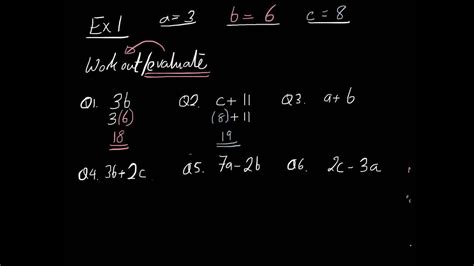 Ex1 a=3 b=6 c=8
Work out/evaluate
Q1. 3b Q2. c+11 Q3. a+b
3(6) (8)+11
18 19
Q4. 3b+2c. Q5. 7a-2b Q6. 2c-3a